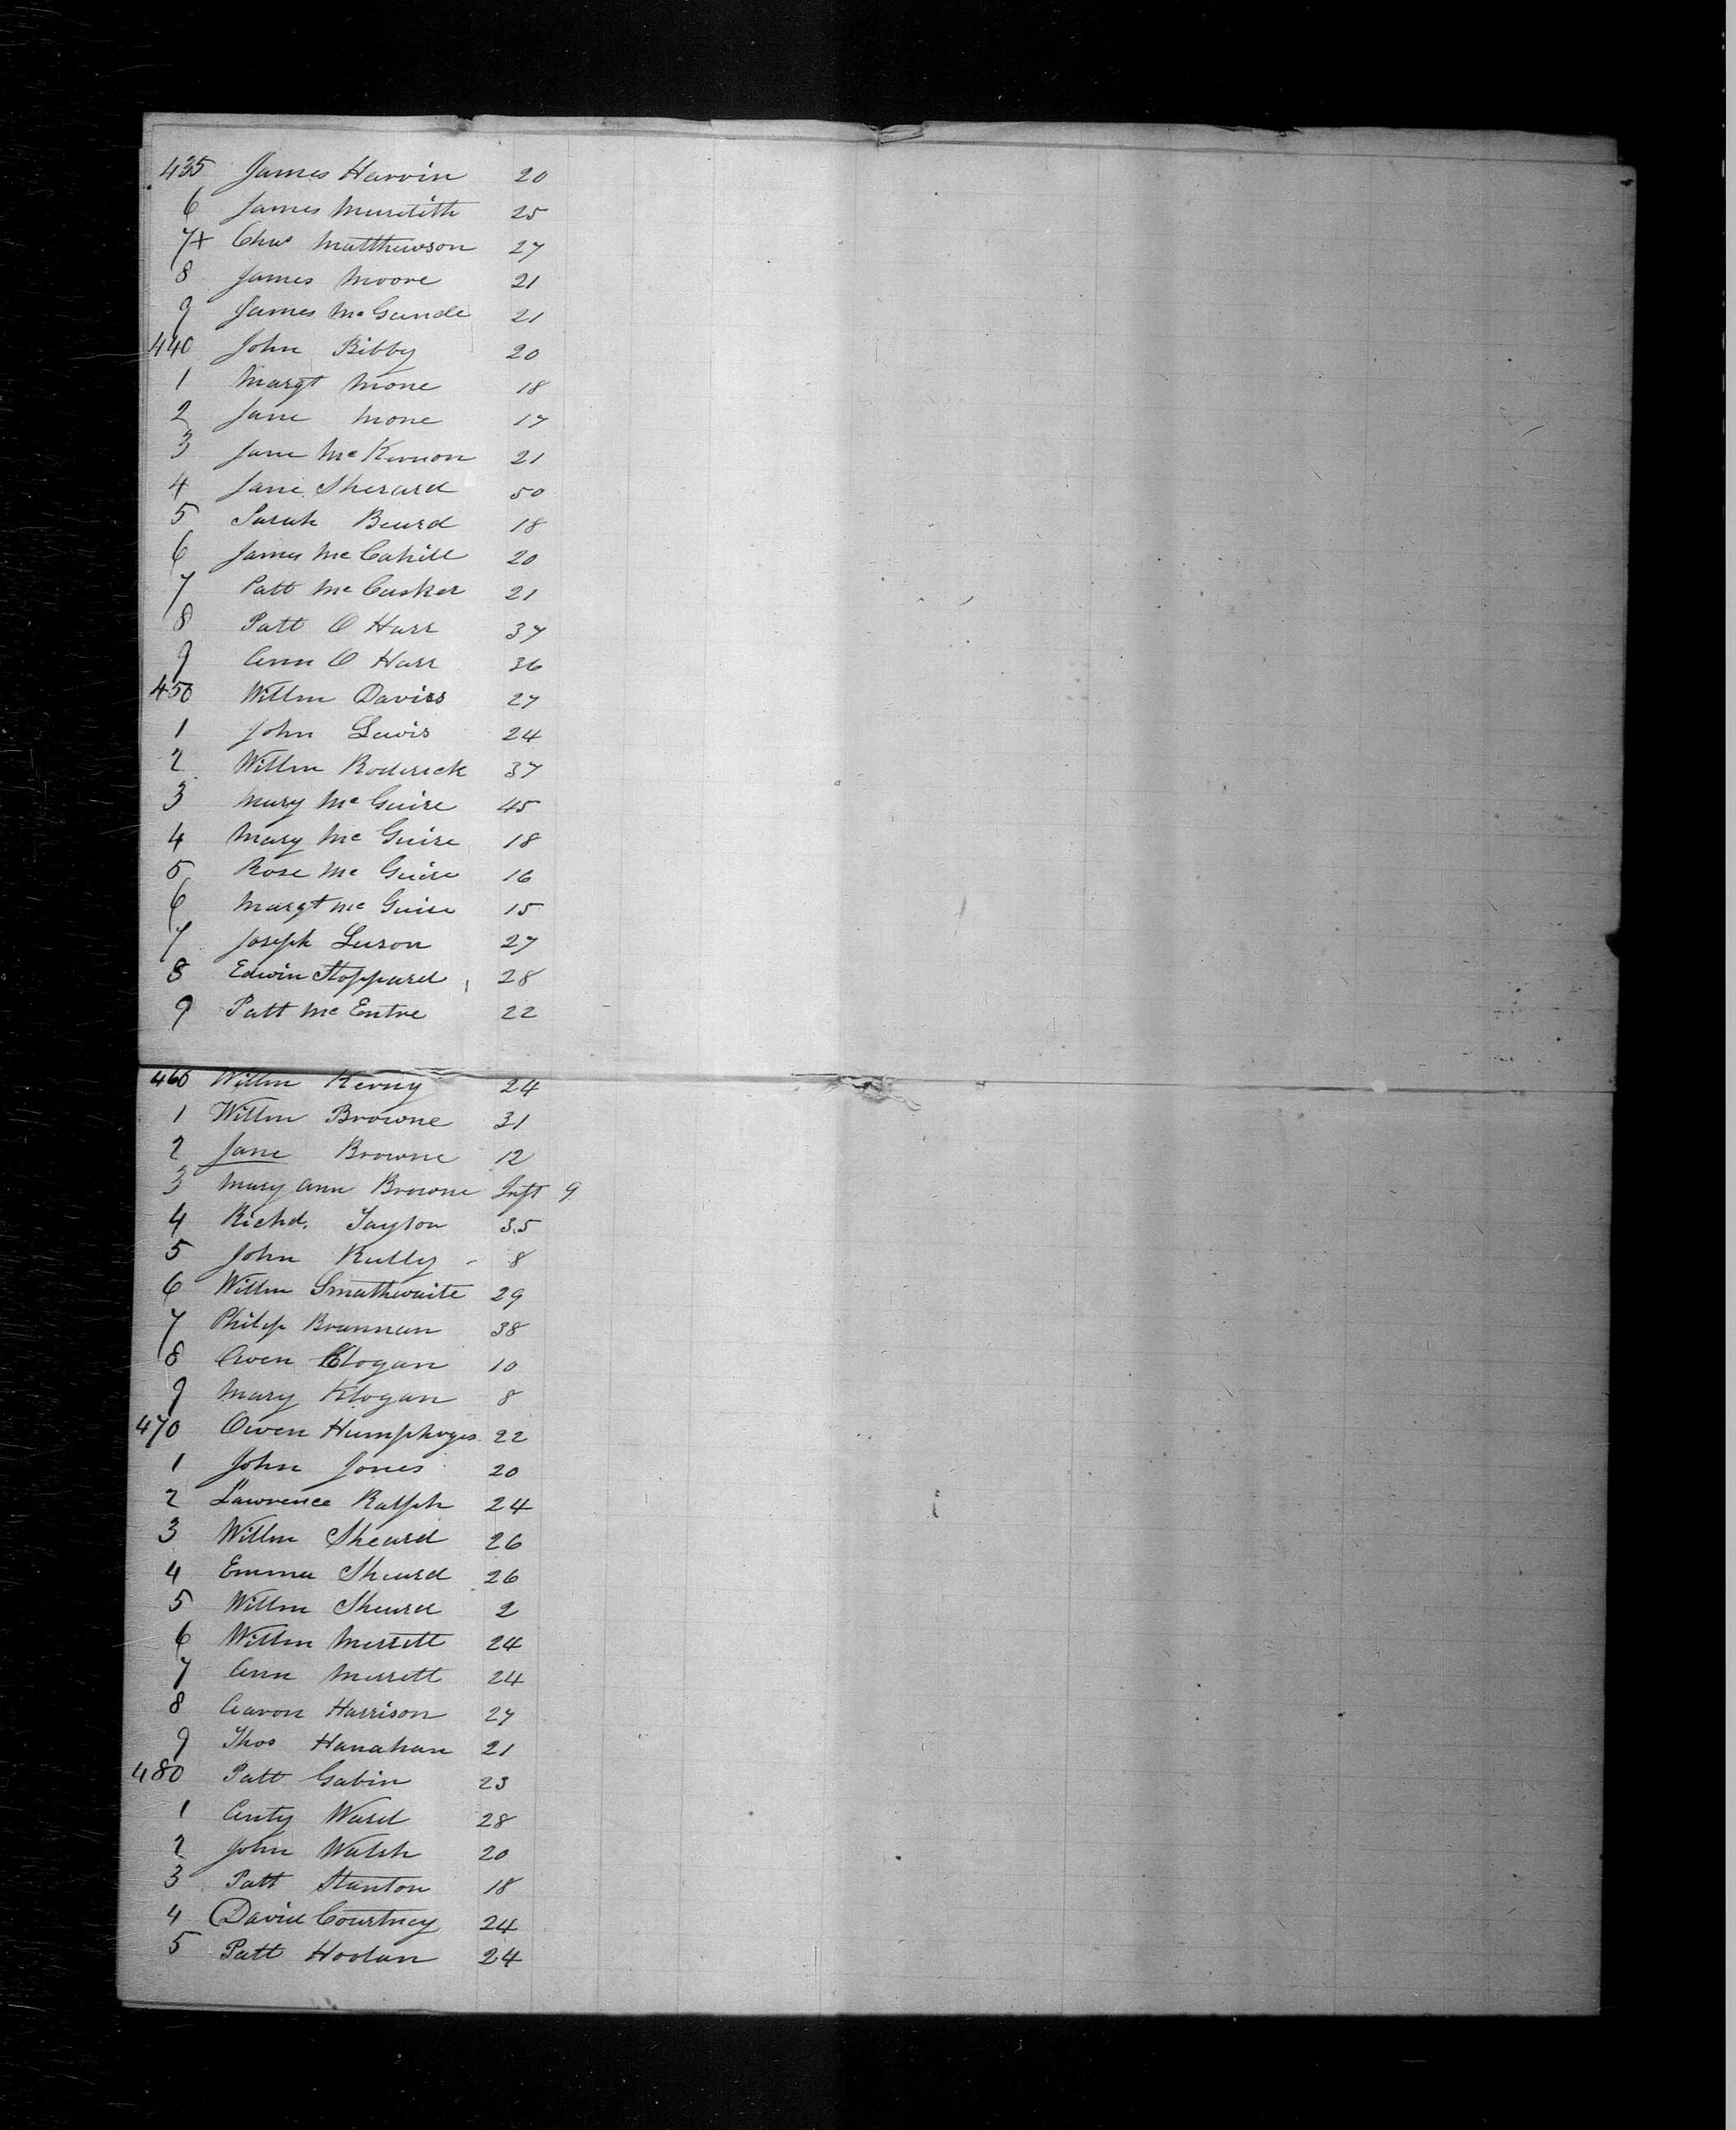 435 James Harvin 20
6 James Meredith 25
7+ Chas Matthewson 27
8 James Moore 21
9 James Mc Gande 21
440 John Bibby 20
1 Margt Mone 18
2 Jane Mone 17
3 Jane Mc Kernon 21
4 Jane Sherard 50
5 Sarah Beard 18
6 James Mc Cahill 20
7 Patt Mc Cusker 21
8 Patt O Harr 37
9 Ann O Harr 36
450 Willm Daviss 27
1 John Lewis 24
2 Willm Roderick 37
3 Mary Mc Guire 45
4 Mary Mc Guire 18
5 Rose Mc Guire 16
6 Margt Mc Guire 15
7 Joseph Leeson 27
8 Edwin Stoppard 28
9 Patt Mc Entre 22
460 Willm Kerny 24
1 Willm Browne 31
2 Jane Browne 12
3 Mary Ann Browne Inft 9
4 Richd. Taylor 35
5 John Kelly 8
6 Willm Smathwaite 29
7 Philip Brannan 38
8 Owen Klogan 10
9 Mary Klogan 8
470 Owen Humphryes 22
1 John Jones 20
2 Lawrence Ralph 24
3 Willm Sheard 26
4 Emma Sheard 26
5 Willm Sheard 2
6 Willm Merrett 24
7 Ann Merrett 24
8 Aaron Harrison 27
9 Thos Hanahan 21
480 Patt Gabin 23
1 Anty Ward 28
2 John Walsh 20
3 Patt Stanton 18
4 David Courtney 24
5 Patt Hoolan 24